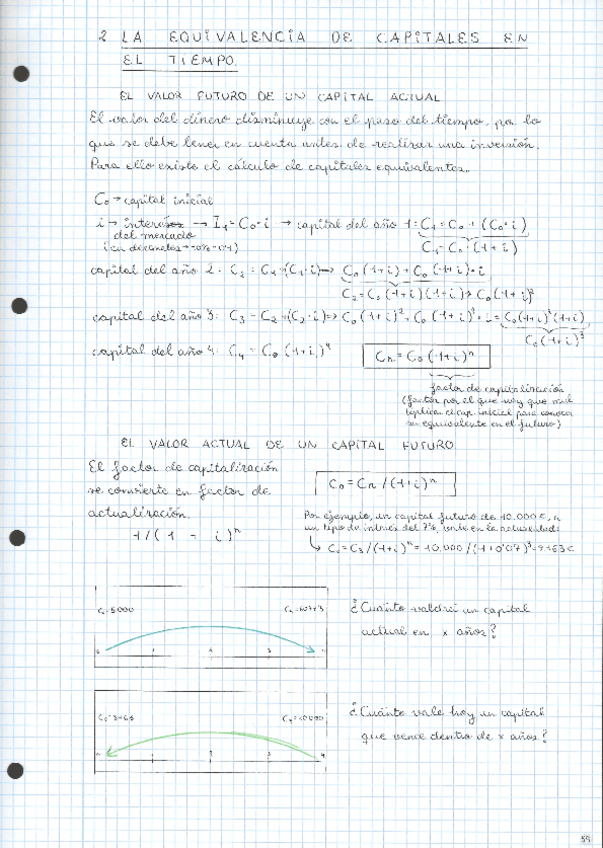 2 LA EQUIVALENCIA DE CAPITALES EN
EL TIEMPO.
EL VALOR FUTURO DE UN CAPITAL ACTUAL
El valor del dinero disminuye con el paso del tiempo, por lo
que se debe tener en cuenta antes de realizar una inversión.
Para ello existe el cálculo de capitales equivalentes.
C₀ → capital inicial
i → intereses → I₁ = C₀·i → capital del año 1: C₁ = C₀ + (C₀·i)
del mercado
C₁ = C₀·(1+i)
capital del año 2: C₂ = C₁+(C₁·i) → C₀(1+i) + C₀(1+i)·i
C₂ = C₀(1+i)(1+i) → C₀(1+i)²
capital del año 3: C₃ = C₂+(C₂·i) → C₀(1+i)² + C₀(1+i)²·i = C₀(1+i)²(1+i)
C₀(1+i)³
capital del año 4: C₄ = C₀(1+i)⁴
Cn = C₀(1+i)ⁿ
factor de capitalización
(factor por el que hay que mul
tiplicar el cap. inicial para conocer
su equivalente en el futuro)
EL VALOR ACTUAL DE UN CAPITAL FUTURO
El factor de capitalización
se convierte en factor de
actualización.
C₀ = Cn/(1+i)ⁿ
Por ejemplo, un capital futuro de 10.000 €, a
un tipo de interés del 7%,
en la actualidad:
1/(1 + i)ⁿ
= C₃/(1+i)ⁿ = 10.000/(1+0'07)³ =
C₀=5000
¿Cuánto valdrá un capital
actual en x años?
C₄=10000
¿Cuánto vale hoy un capital
que vence dentro de x años?
55